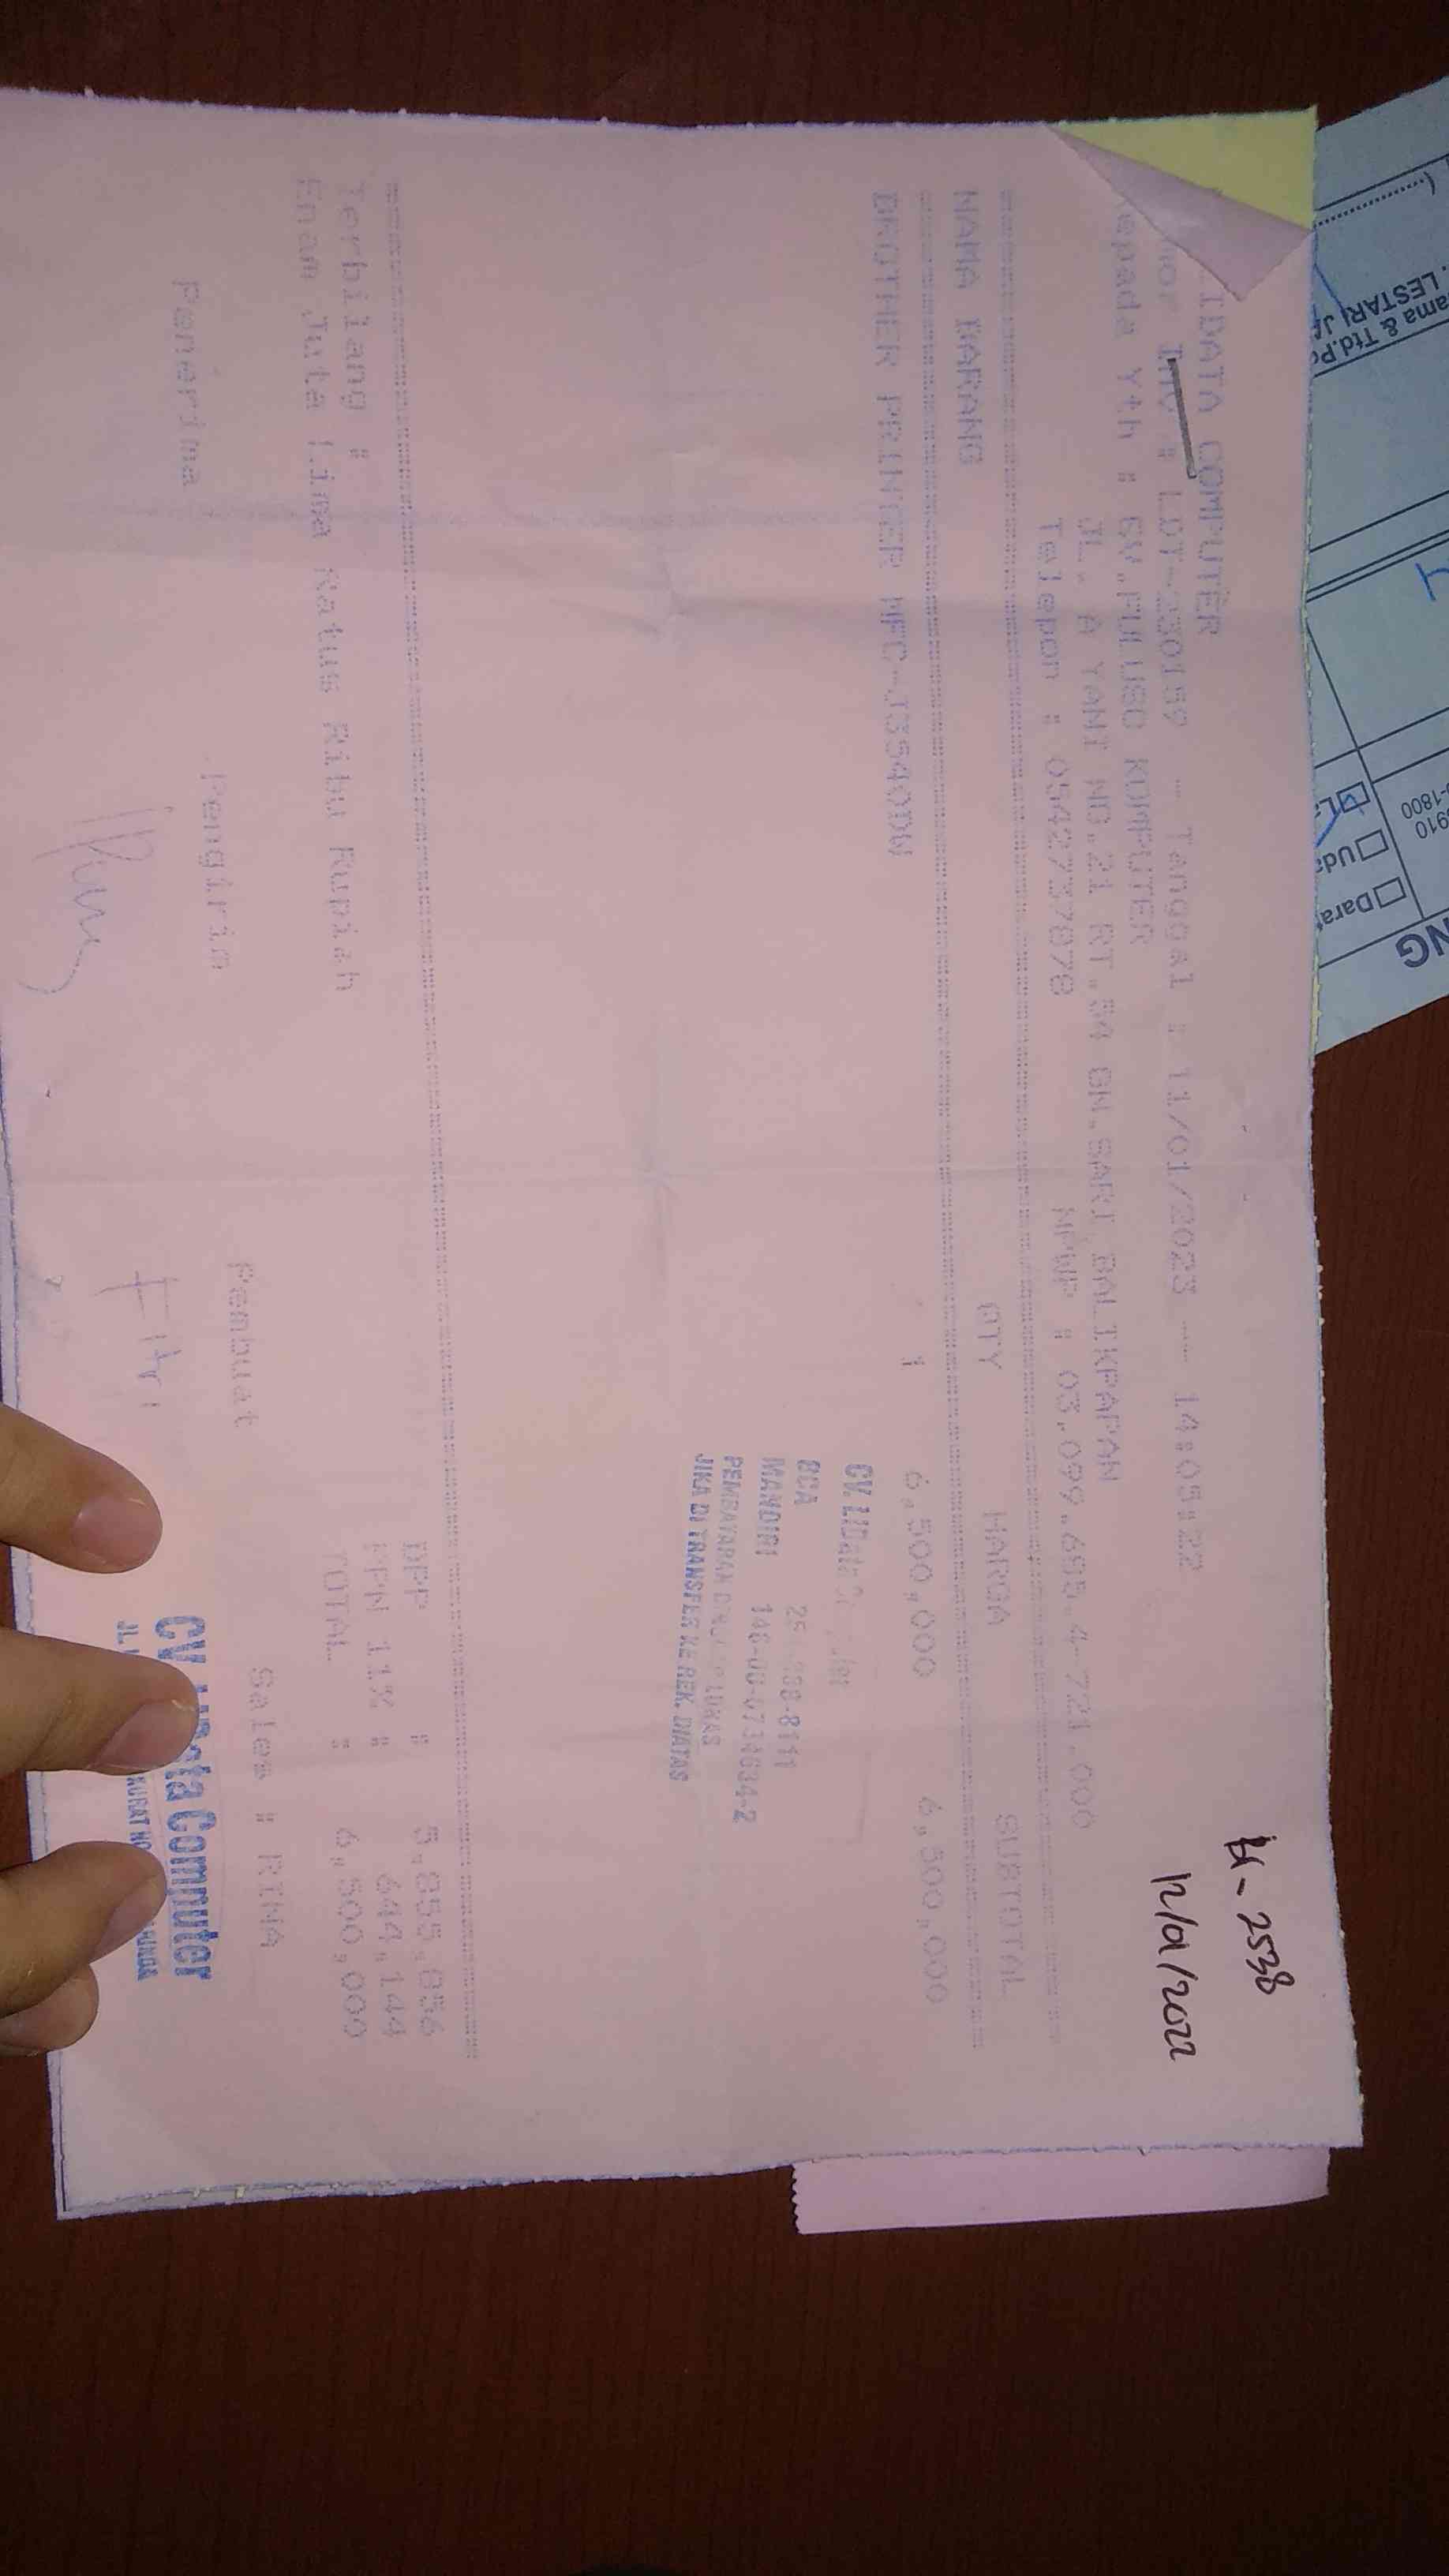 LIDATA COMPUTER
Inv : LDT-230159 - Tanggal : 11/01/2023 -- 14:05:22
Kepada Yth : KOMPUTER
JL. A YANI NO.21 RT.54 GN.SARI BALIKPAPAN
Telepon : 0542737878 NPWP : 03.099.655.4-721.000
NAMA BARANG QTY HARGA SUBTOTAL
BROTHER PRINGER MFC-J3540DW 1 6,500,000 6,500,000
CV. LiData
BCA
MANDIRI
PEMBAYARAN LUNAS
JIKA DI TRANSFER KE REK. DIATAS
DPP : 5,855,856
Terbilang : PPN 11% : 644,144
Enam Juta Lima Ratus Ribu Rupiah TOTAL : 6,500,000
Penerima Pengirim Pembuat Sales : RINA
Fitri
CV. LiData Computer
H-2538
12/01/2022
LESTARI
ama & Ttd.
910
-1800
Darat
NG